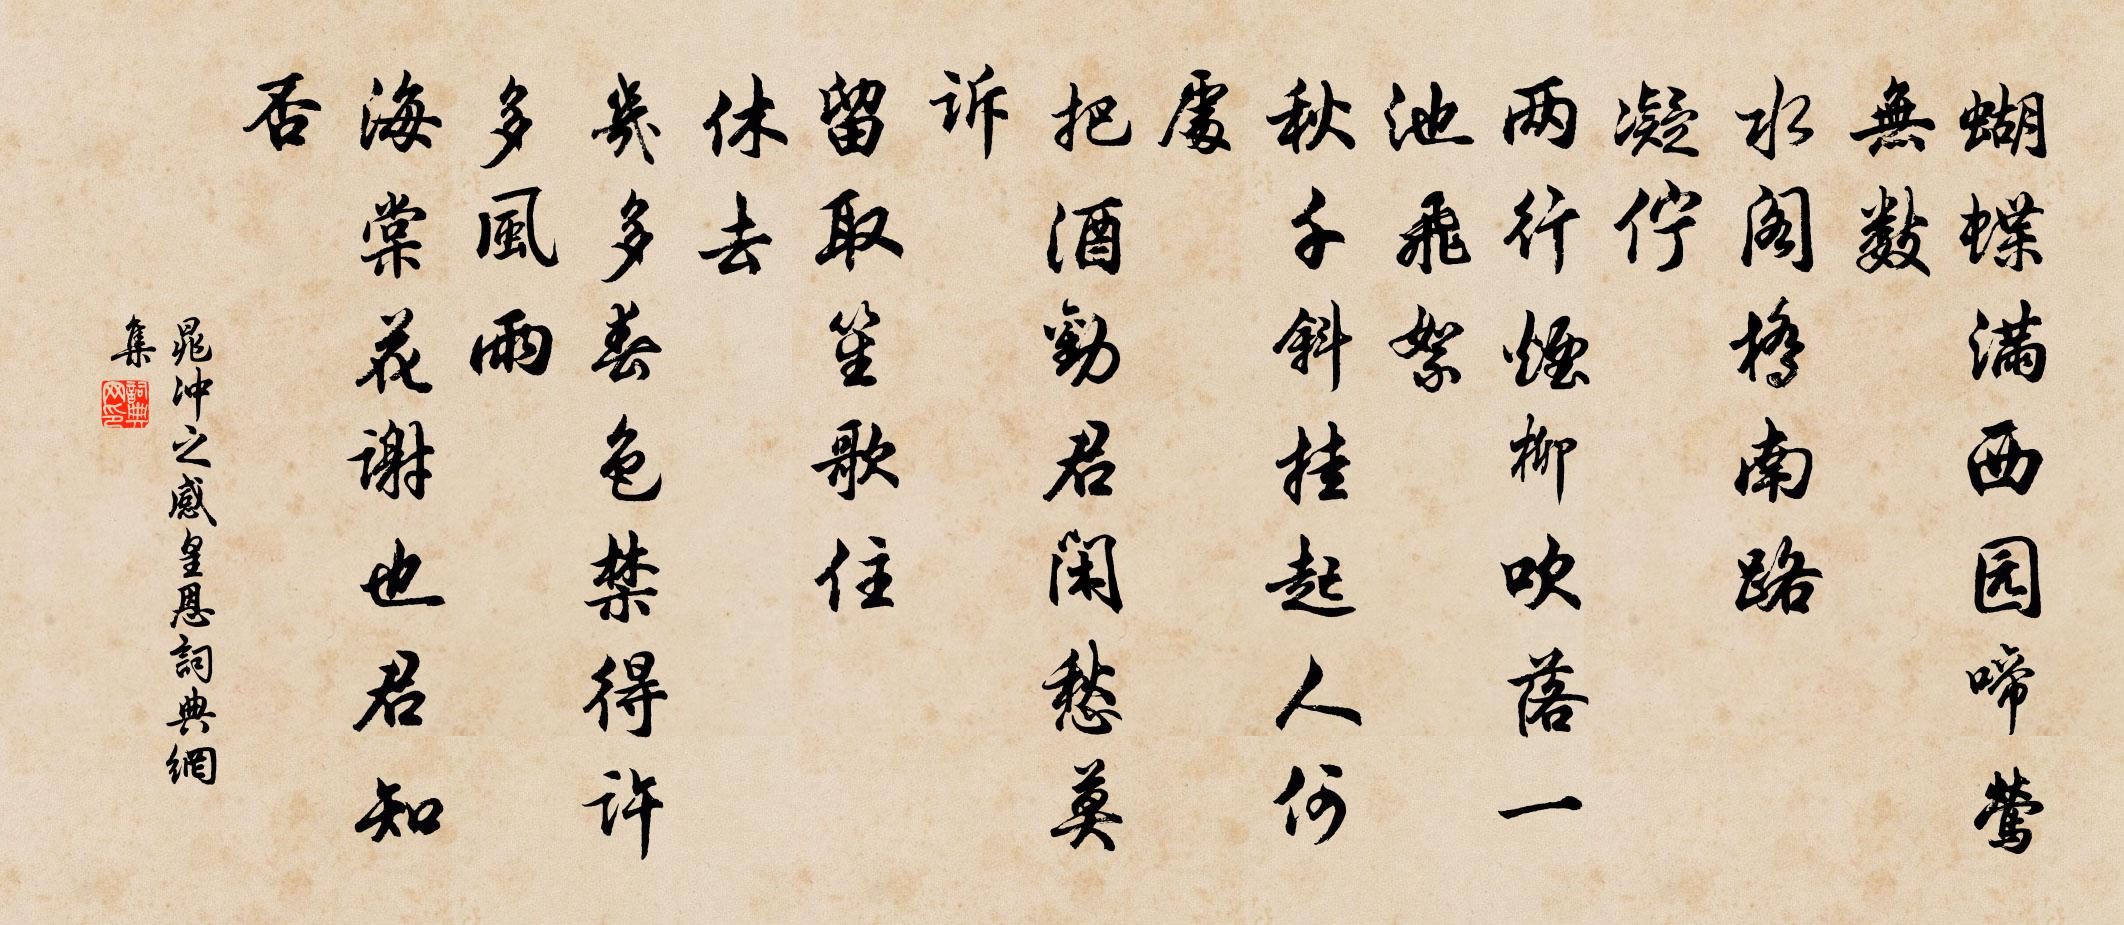 蝴蝶满西园啼莺
無数
水阁橋南路
凝佇
两行煙柳吹落一
池飛絮
秋千斜挂起人何
處
把酒勸君闲愁莫
诉
留取笙歌住
休去
幾多春色禁得许
多風雨
海棠花谢也君知
否
晁冲之感皇恩詞典網
集
詞典
网印